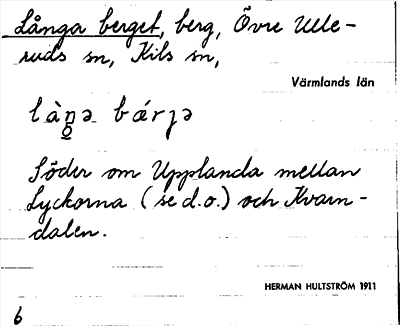 Långa berget, berg, Övre Ulle-
ruds sn, Kils sn,
Värmlands län
Söder om Upplanda mellan
Lyckorna (se d.o.) och Kvarn-
dalen.
HERMAN HULTSTRÖM 1911
6